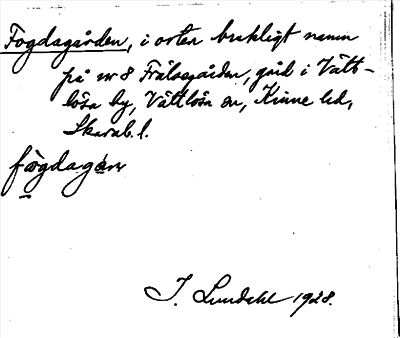 Fogdagården, i orten brukligt namn
på nr 8 Frälsegården, gård i Vätt-
lösa by, Vättlösa sn, Kinne hd,
Skarab. l.
I. Lundahl 1928.